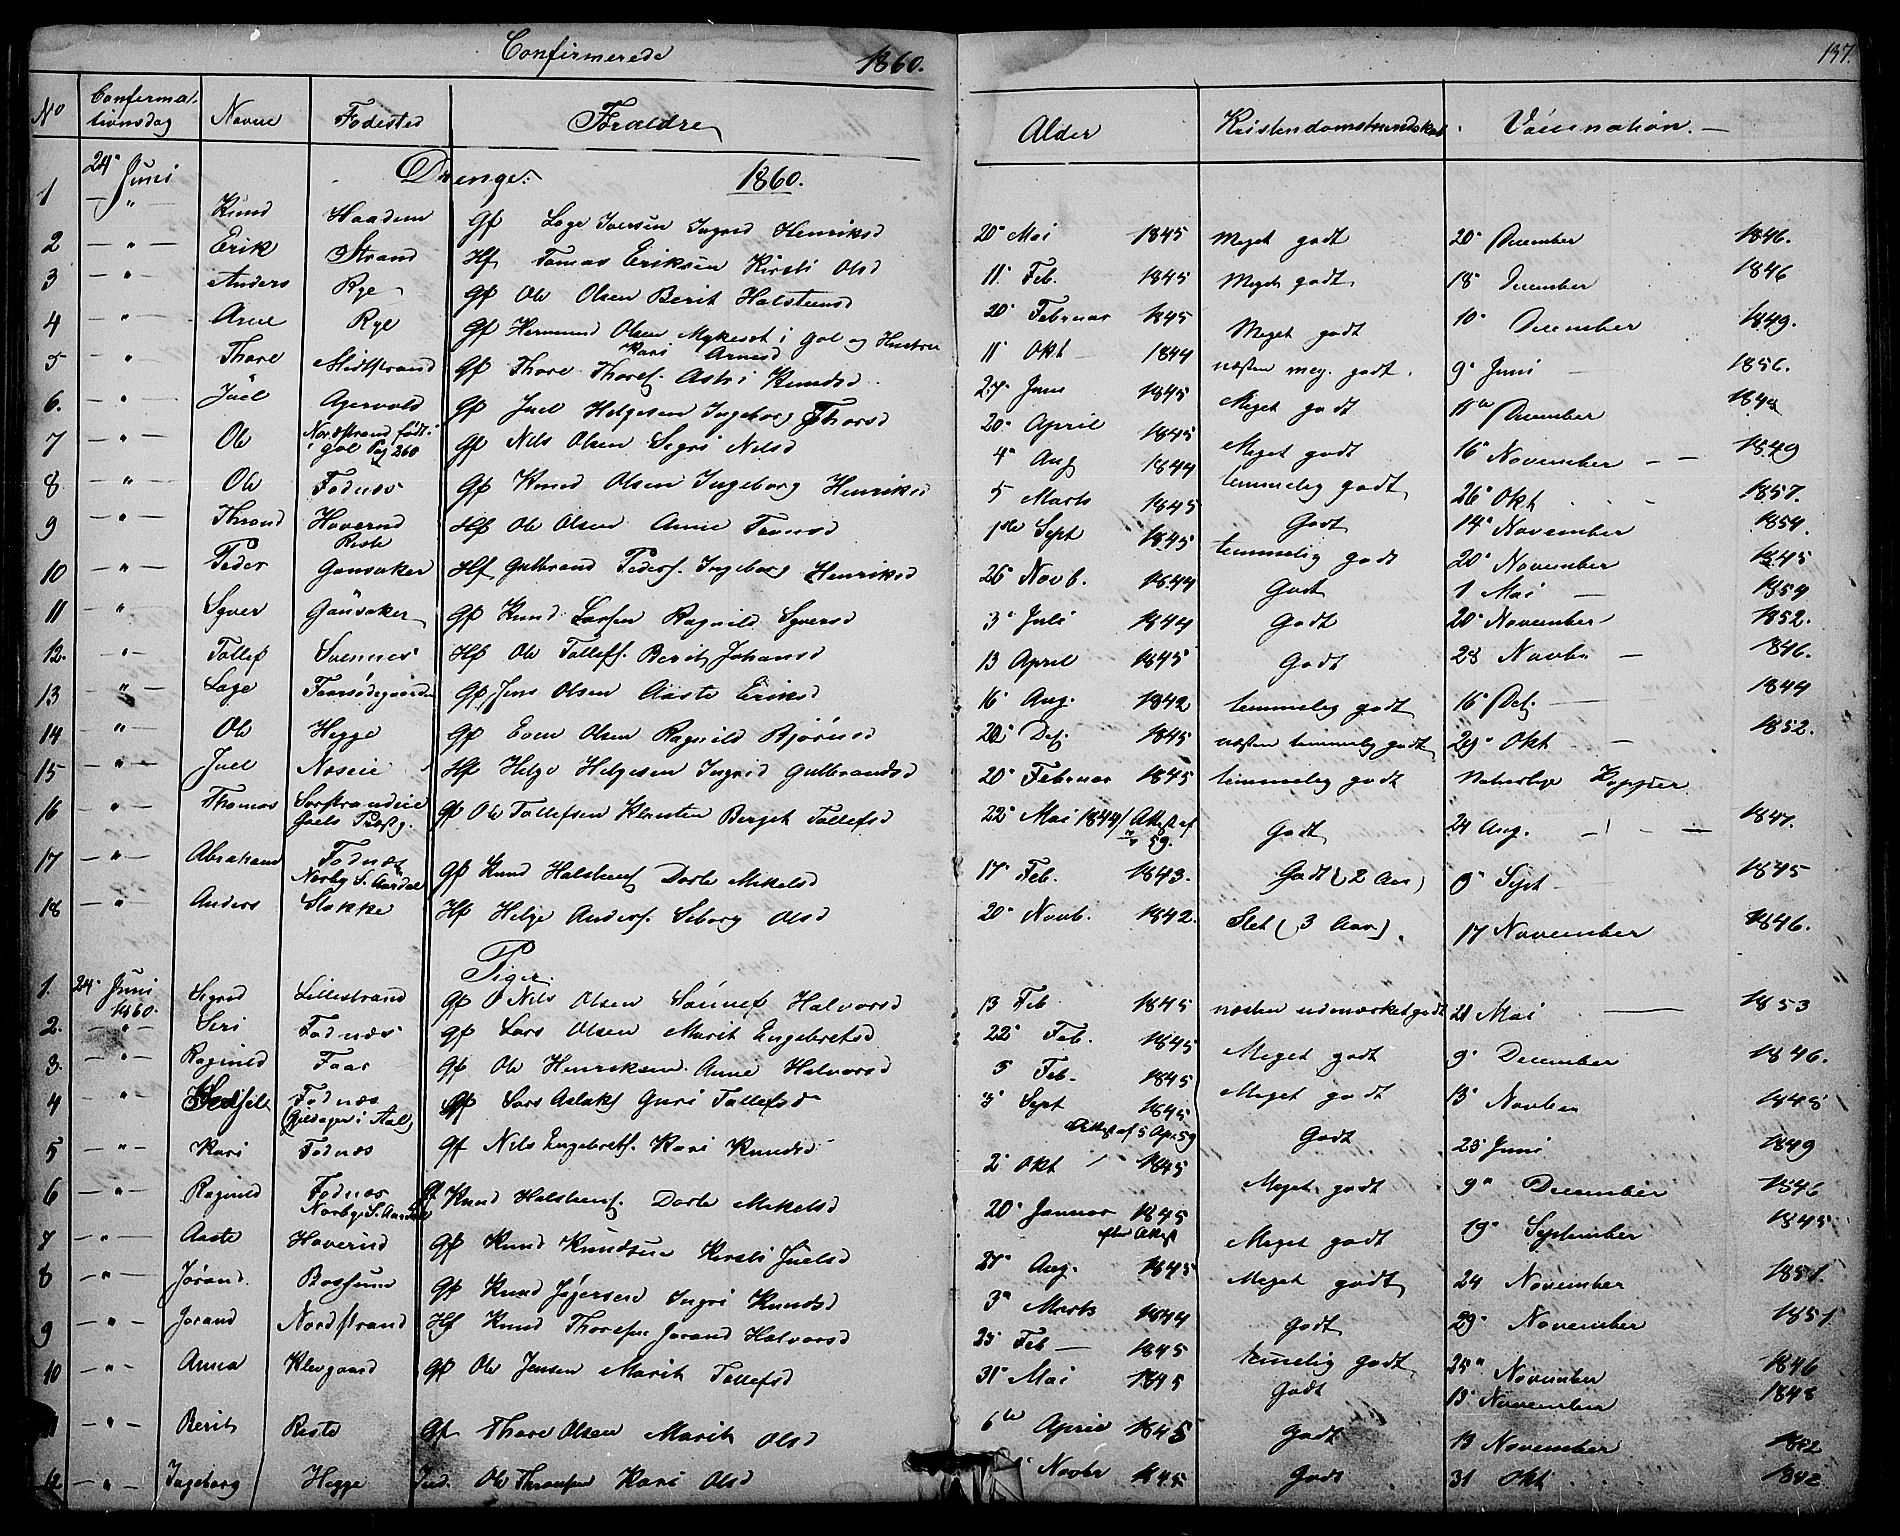 Confirmerede 1860. 137.
No Confirmationsdag Navne Fødested Forældre Alder Kristendomskundskab. Vaccination. —
24de Juni Drenge. 1860.
1 — " — Knud Haadem Gf Lage Iversen Ingrid Henriksd 20de Mai 1845 Meget godt 20de December 1846.
2 — " — Erik Strand Hf Tomas Eriksen Kirsti Olsd 11. Feb. 1845 Meget godt 18de December 1846
3 " Anders Rye Gf Ole Olsen Berit Halsteensd 20de Februar 1845 Meget godt 10de December 1849.
4 — " — Arne Rye Gf Hermund Olsen Mykestt i Gol og Hustru Kari Arnesd 11te Okt 1844 næsten meg. godt. 9de Juni — 1856.
5 " Thore Midtstrand Gf Thore Thoresf. Astri Knudsd 27de Juni 1845 Meget godt 11te December
6. — " — Juel Agervold Gf Juel Helgesen Ingeborg Thorsd 20de April 1845 Meget godt 16de November — — 1849
7 — " — Ole Nordstrand født i Gol Pag 260 Gf Nils Olsen Segri Nilsd 4de Aug 1844 temmelig godt 26de Okt 1857.
8. — " — Ole Fodnæs Gf Knud Olsen Ingeborg Henriksd 5 Marts 1845 Godt 14de November 1854.
9 — " — Thrond Haverud Hf Ole Olsen Anne Toversd 1ste Sept 1845 temmelig godt 20de November 1845
10 — " — Peder Riste Gansaker Hf Gulbrand Pedersf. Ingeborg Henriksd 26de Novb. 1844 Godt 1 Mai — 1854
11 " Syver Gansaker Gf Knud Larsen Ragnild Syversd 3de Juli 1844 Godt 20de November 1852.
12. — " — Tollef Svennes Hf Ole Tollefs. Berit Johansd 13 April 1845 Godt 28 Novbr — 1846.
13 — " — Lage Faarsødegaarden Gf Jens Olsen Aaste Eriksd 16de Aug. 1842 temmelig godt 16de Dec. — 1844
14 — " — Ole Hegge Gf Even Olsen Ragnild Bjørnsd Dec. 1845 næsten temmelig godt 29de Okt — 1852.
15 — " — Juel Noseie Hf Helge Helgesen Ingrid Gulbrandsd 20de Februar 1845 temmelig godt Naturlige Kopper
16 " Thomas Sorstrandeie Gols Præstg. Gf Ole Tollefsen Klanten Berget Tollefsd 22de Mai 1844 / Attest af 59. Godt 24 Aug. 1847.
17 — " — Abraham Fodnæs Norby S. Aurdal Gf Knud Halstensf Dorte Mikelsd 17de Feb. 1843. Godt (2 Aar) Sept 1845
18 — " — Anders Slokke Hf Helge Andersf. Seborg Olsd 20de Novb. 1842. Slet (3 Aar). 17 November 1846.
Piger.
1. 24de Juni 1860. Sigrid Lillestrand Gf Nils Olsen Sønnef Halvorsd 13 Feb 1845 næsten udmærket godt 21 Mai — 1853
2. — " — Seri Fodnæs Gf Lars Olsen Marit Engebretsd 22de Feb. 1845 Meget godt 9de December 1846.
3. — " — Ragnild Faar Gf Ole Henriksen Anne Halvorsd 5 Feb. 1845 Meget godt 13de Novbr
4 " Fodnæs Gf Lars Aslaks. Guri Tollefsd Sept 1845 Attest af 5 Apr. 59 Godt 25 Juni 1849
5 — " — Kari Fodnæs Gf Nils Engebretsf. Kari Knudsd 2de Okt 1845 Meget godt 9de December 1846
6 — " — Ragnild Fodnæs Norby S. Aurdal Gf Knud Halstensf. Dorte Mikelsd 20de Januar 1845 efter Attest Meget godt 19de September 1845
7 — " — Aaste Haverud Gf Knud Knudsen Kirsti Juelsd Aug. 1845 Meget godt 24 November 1851.
8 " Jørand Gf Knud Jøgersen Ingri Knudsd 3de Marts 1844 Godt 29de November 1851
9 — " — Jorand Nordstrand Hf Knud Thoresen Jorand Halvorsd 25 Feb — 1845 temelig godt 25de November 1846
10 — " — Anna Klevgaard Gf Ole Jensen Marit Tollefsd 31te Mai 1845 Godt 13de November 1848
11 — " — Berit Riste Gf Thore Olsen Marit Olsd 6te April 1845 Godt 19 November
12 — " — Ingeborg Hegge Ind. Ole Thronsen Kari Olsd Novbr 1845 Godt 31 Okt 1842